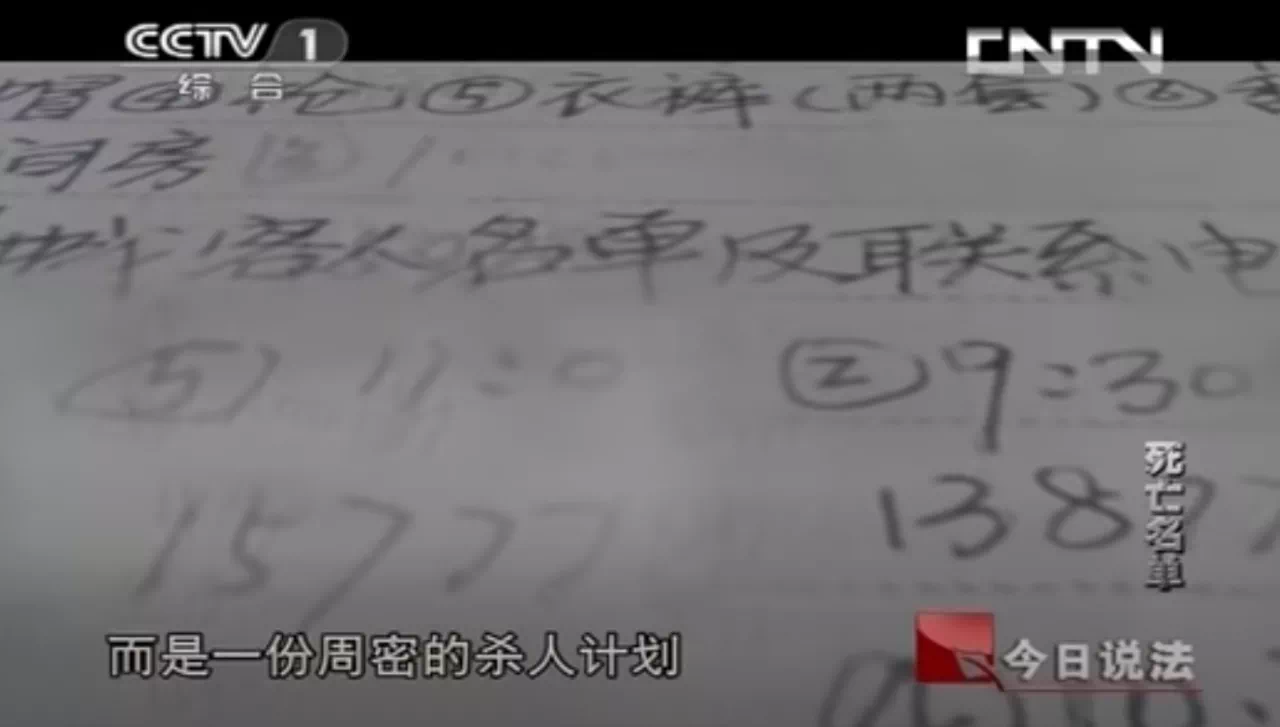 CCTV 1
综合
CNTV
帽④枪⑤衣裤(两套)⑥
间房
客人名单及联系电
⑤ 11:0
②9:30
15777
1389
死亡名单
而是一份周密的杀人计划
今日说法